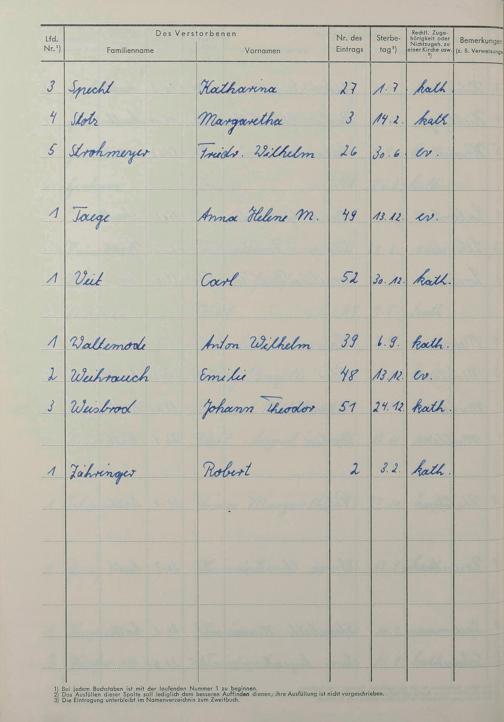 Lfd. Nr.¹) Des Verstorbenen Familienname Vornamen Nr. des Eintrags Sterbe- tag³) Rechtl. Zuge- hörigkeit oder Nichtzugeh. zu einer Kirche usw. ²) Bemerkungen (z. B. Verweisungen
3 Specht Katharina 27 1.7 kath.
4 Stolz Margaretha 3 14.2. kath
5 Strohmeyer Friedr. Wilhelm 26 30.6. ev.
1 Taege Anna Helene M. 49 13.12. ev.
1 Veit Carl 52 30.12. kath.
1 Waltemode Anton Wilhelm 39 6.9. kath.
2 Weihrauch Emilie 48 13.12. ev.
3 Weisbrod Johann Theodor 51 24.12. kath.
1 Zähringer Robert 2 3.2. kath.
1) Bei jedem Buchstaben ist mit der laufenden Nummer 1 zu beginnen.
2) Das Ausfüllen dieser Spalte soll lediglich dem besseren Auffinden dienen; ihre Ausfüllung ist nicht vorgeschrieben.
3) Die Eintragung unterbleibt im Namenverzeichnis zum Zweitbuch.